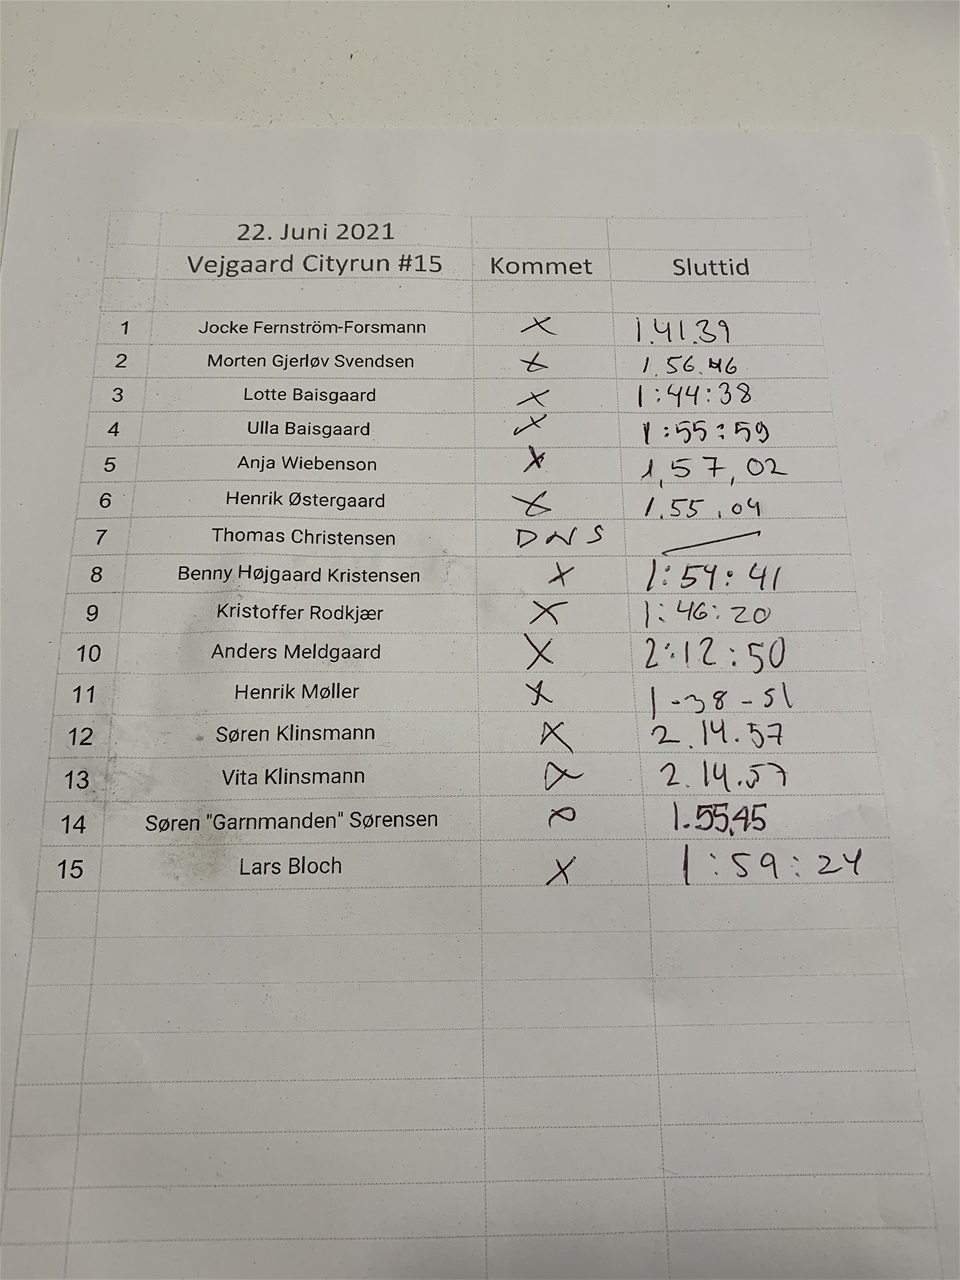 22. Juni 2021
Vejgaard Cityrun #15 Kommet Sluttid
1 Jocke Fernström-Forsmann X 1.41.39
2 Morten Gjerløv Svendsen X 1.56.46
3 Lotte Baisgaard X 1:44:38
4 Ulla Baisgaard X 1:55:59
5 Anja Wiebenson X 1,57,02
6 Henrik Østergaard X 1.55.04
7 Thomas Christensen DNS —
8 Benny Højgaard Kristensen X 1:54:41
9 Kristoffer Rodkjær X 1:46:20
10 Anders Meldgaard X 2:12:50
11 Henrik Møller X 1-38-51
12 Søren Klinsmann X 2.14.57
13 Vita Klinsmann X 2.14.57
14 Søren "Garnmanden" Sørensen X 1.55.45
15 Lars Bloch X 1:59:24